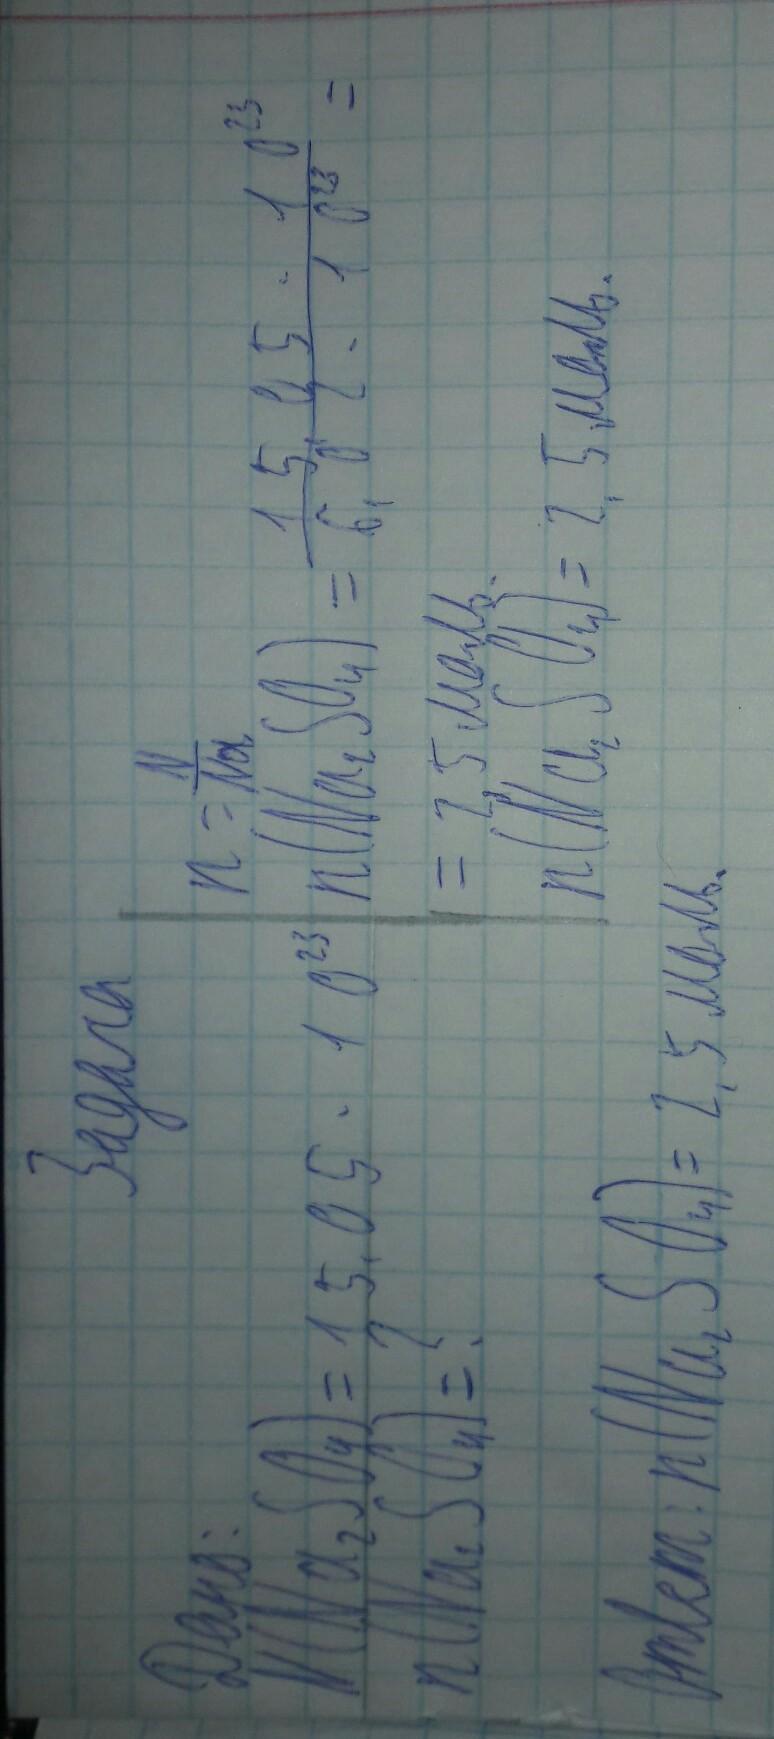 Задача
Дано:
N(Na₂SO₄) = 15,05 · 10²³
n(Na₂SO₄) = ?
n = N/Na
n(Na₂SO₄) = 15,05 · 10²³/6,02 · 10²³ =
= 2,5 моль.
n(Na₂SO₄) = 2,5 моль.
Ответ: n(Na₂SO₄) = 2,5 моль.